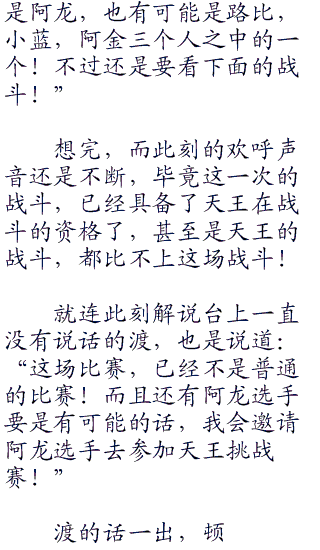 是阿龙，也有可能是路比，
小蓝，阿金三个人之中的一
个！不过还是要看下面的战
斗！”
想完，而此刻的欢呼声
音还是不断，毕竟这一次的
战斗，已经具备了天王在战
斗的资格了，甚至是天王的
战斗，都比不上这场战斗！
就连此刻解说台上一直
没有说话的渡，也是说道：
“这场比赛，已经不是普通
的比赛！而且还有阿龙选手
要是有可能的话，我会邀请
阿龙选手去参加天王挑战
赛！”
渡的话一出，顿